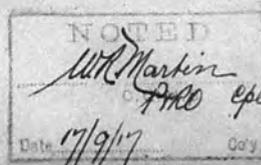 NOTED
WR Martin
O.
Date 17/9/17 Coy